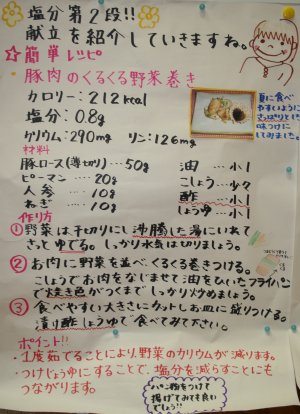 塩分第2段!!
献立を紹介していきますね。
☆簡単レシピ
・豚肉のくるくる野菜巻き
カロリー:212kcal
塩分:0.8g
カリウム:290mg リン:126mg
夏に食べ
やすいように
さっぱりとした
味つけに
してみました。
材料
豚ロース(薄切り)…50g
ピーマン … 20g
人参 … 10g
ねぎ … 10g
油 … 小1
こしょう … 少々
酢 … 小1
しょうゆ … 小1
作り方
①野菜は千切りにし沸騰した湯にいれて
さっとゆでる。しっかり水気は切りましょう。
②お肉に野菜を並べ、くるくる巻きつける。
こしょうでお肉をなじませて油をひいたフライパン
で焼き色がつくまでしっかり炒めましょう。
③食べやすい大きさにカットしお皿に盛りつける。
漬け酢しょうゆで食べてみて下さい。
ポイント!!
・1度茹でることにより、野菜のカリウムが減ります。
・つけじょうゆにすることで、塩分を減らすことにも
つながります。
パン粉をつけて
揚げてみても良い
でしょう!!